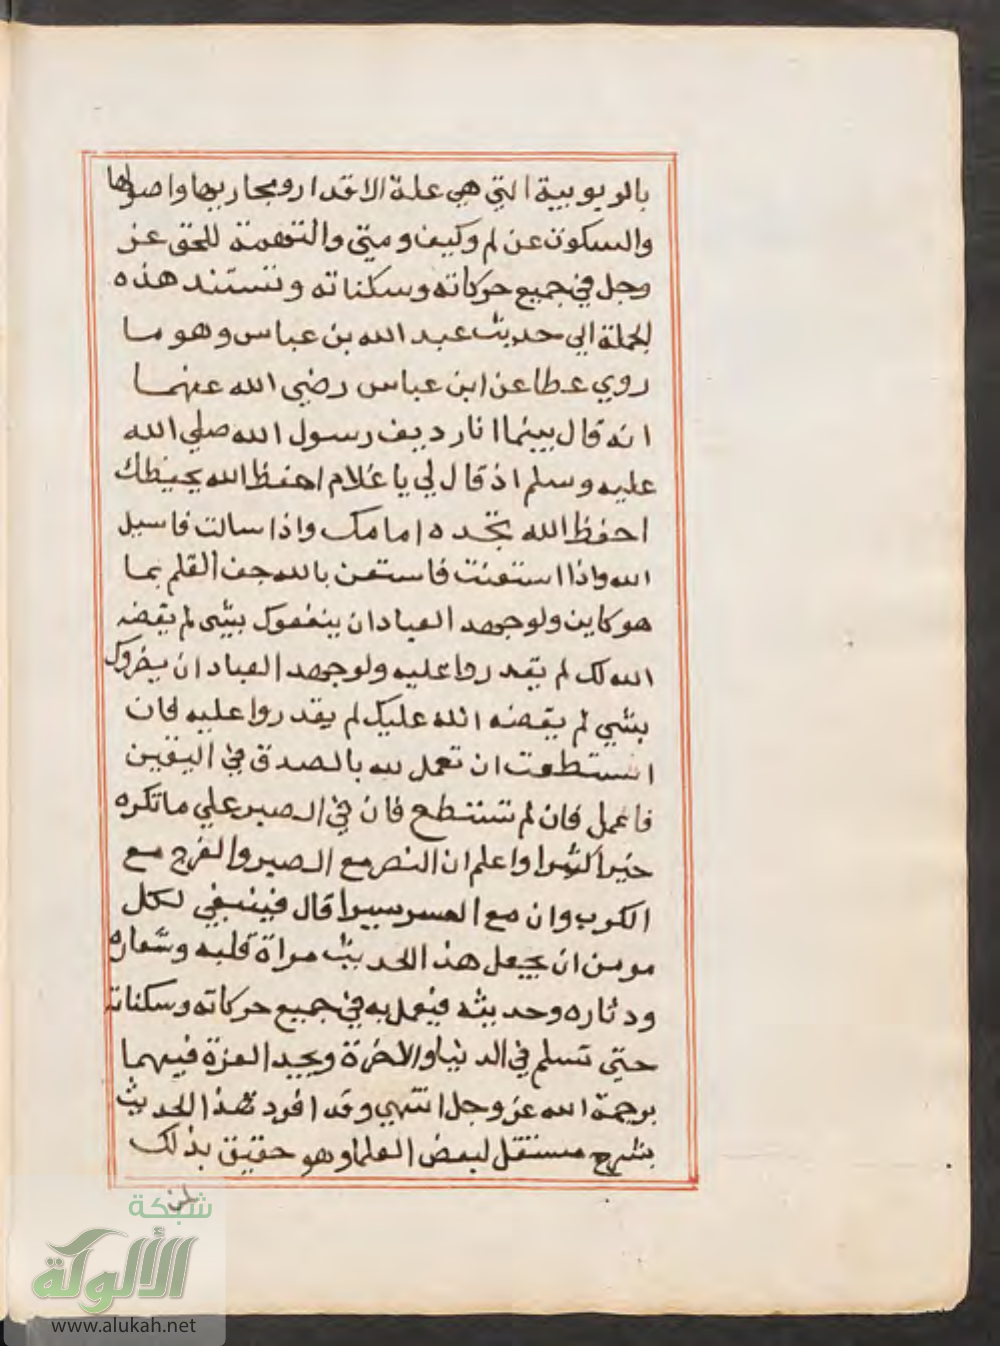 بالربوبية التي هي علة الاقدار ومجاريها واصولها
والسكون عن لم وكيف ومتي والتهمة للحق عز
وجل في جميع حركاته وسكناته وتستند هذه
الجملة الي حديث عبد الله بن عباس وهو ما
روي عطا عن ابن عباس رضي الله عنهما
انه قال بينما انا رديف رسول الله صلي الله
عليه وسلم اذ قال لي يا غلام احفظ الله يحفظك
احفظ الله تجده امامك واذا سالت فاسيل
الله واذا استعنت فاستعن بالله جف القلم بما
هو كاين ولو جهد العباد ان ينفعوك بشي لم يقضه
الله لك لم يقدروا عليه ولو جهد العباد ان يضروك
بشي لم يقضه الله عليك لم يقدروا عليه فان
استطعت ان تعمل لله بالصدق في اليقين
فاعمل فان لم تستطع فان في الصبر علي ما تكره
خيرا كثيرا واعلم ان النصر مع الصبر والفرج مع
الكرب وان مع العسر يسرا قال فينبغي لكل
مومن ان يجعل هذا الحديث مراة قلبه وشعاره
ودثاره وحديثه فيعمل به في جميع حركاته وسكناته
حتي تسلم في الدنيا والاخرة ويجد العزة فيهما
برحمة الله عز وجل انتهي وقد افرد هذا الحديث
بشرح مستقل لبعض العلما وهو حقيق بذلك
شبكة
الألوكة
www.alukah.net